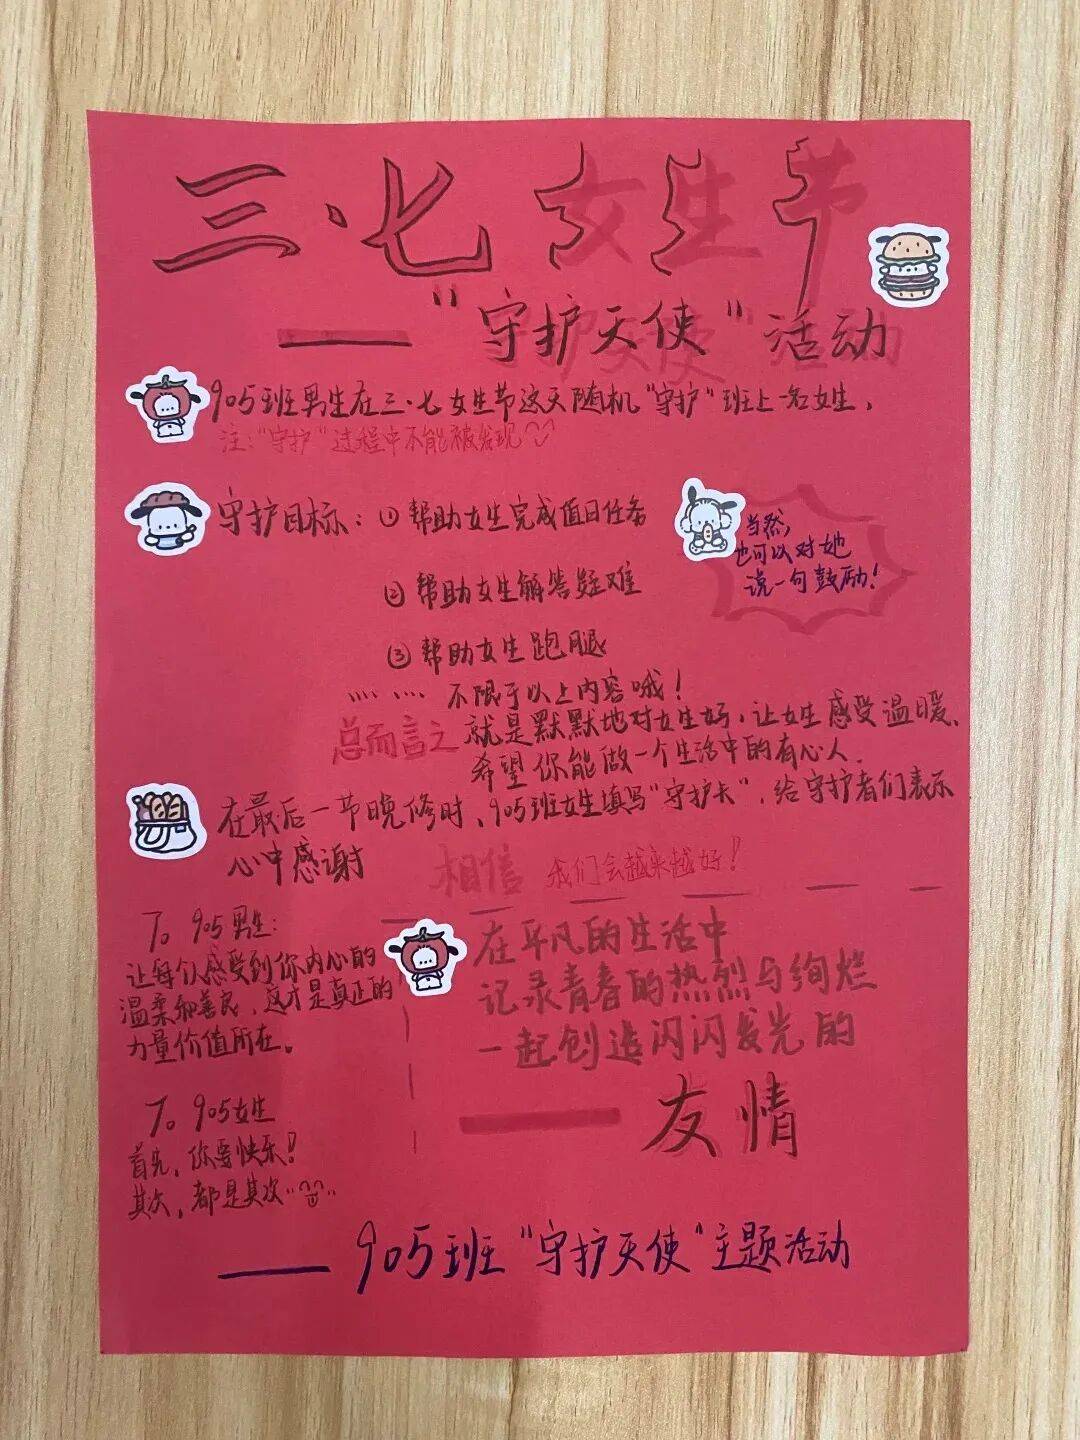 三·七女生节
——“守护天使”活动
905班男生在三·七女生节这天随机“守护”班上一名女生，
注：“守护”过程中不能被发现
守护目标：①帮助女生完成值日任务
当然，
也可以对她
说一句鼓励！
②帮助女生解答疑难
③帮助女生跑腿
…… 不限于以上内容哦！
总而言之 就是默默地对女生好，让女生感受温暖、
希望你能做一个生活中的有心人.
在最后一节晚修时，905班女生填写“守护卡”，给守护者们表示
心中感谢
相信 我们会越来越好！
To 905男生：
让每个人感受到你内心的
温柔和善良，这才是真正的
力量价值所在。
To 905女生
首先，你要快乐！
其次，都是其次
在平凡的生活中
记录青春的热烈与绚烂
一起创造闪闪发光的
——友情
——905班“守护天使”主题活动